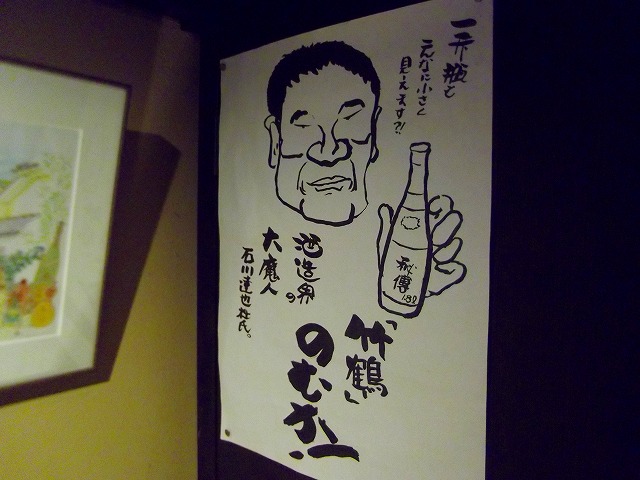 一升瓶も
こんなに小さく
見えます?!
秘傳
1.8ℓ
酒造界の
大魔人
石川達也杜氏。
「竹鶴」
のむかー!